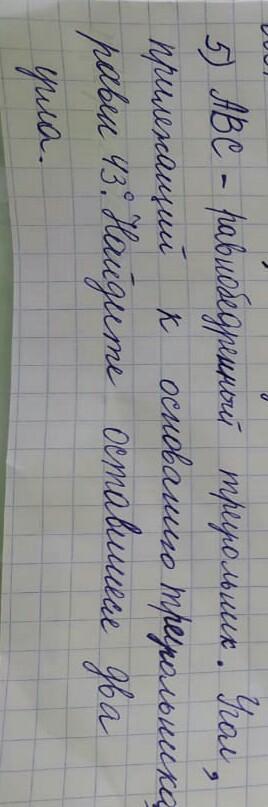 5) АВС - равнобедренный треугольник. Угол,
прилежащий к основанию треугольника
равен 43°. Найдите оставшиеся два
угла.